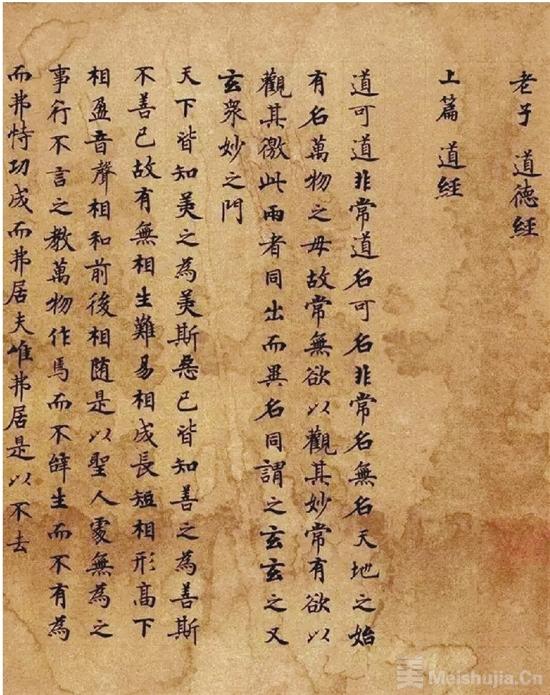 老子 道德經
上篇 道經
道可道非常道名可名非常名無名天地之始
有名萬物之母故常無欲以觀其妙常有欲以
觀其徼此兩者同出而異名同謂之玄玄之又
玄衆妙之門
天下皆知美之為美斯惡已皆知善之為善斯
不善已故有無相生難易相成長短相形高下
相盈音聲相和前後相随是以聖人處無為之
事行不言之教萬物作焉而不辞生而不有為
而弗恃功成而弗居夫唯弗居是以不去
美 Meishujia.Cn